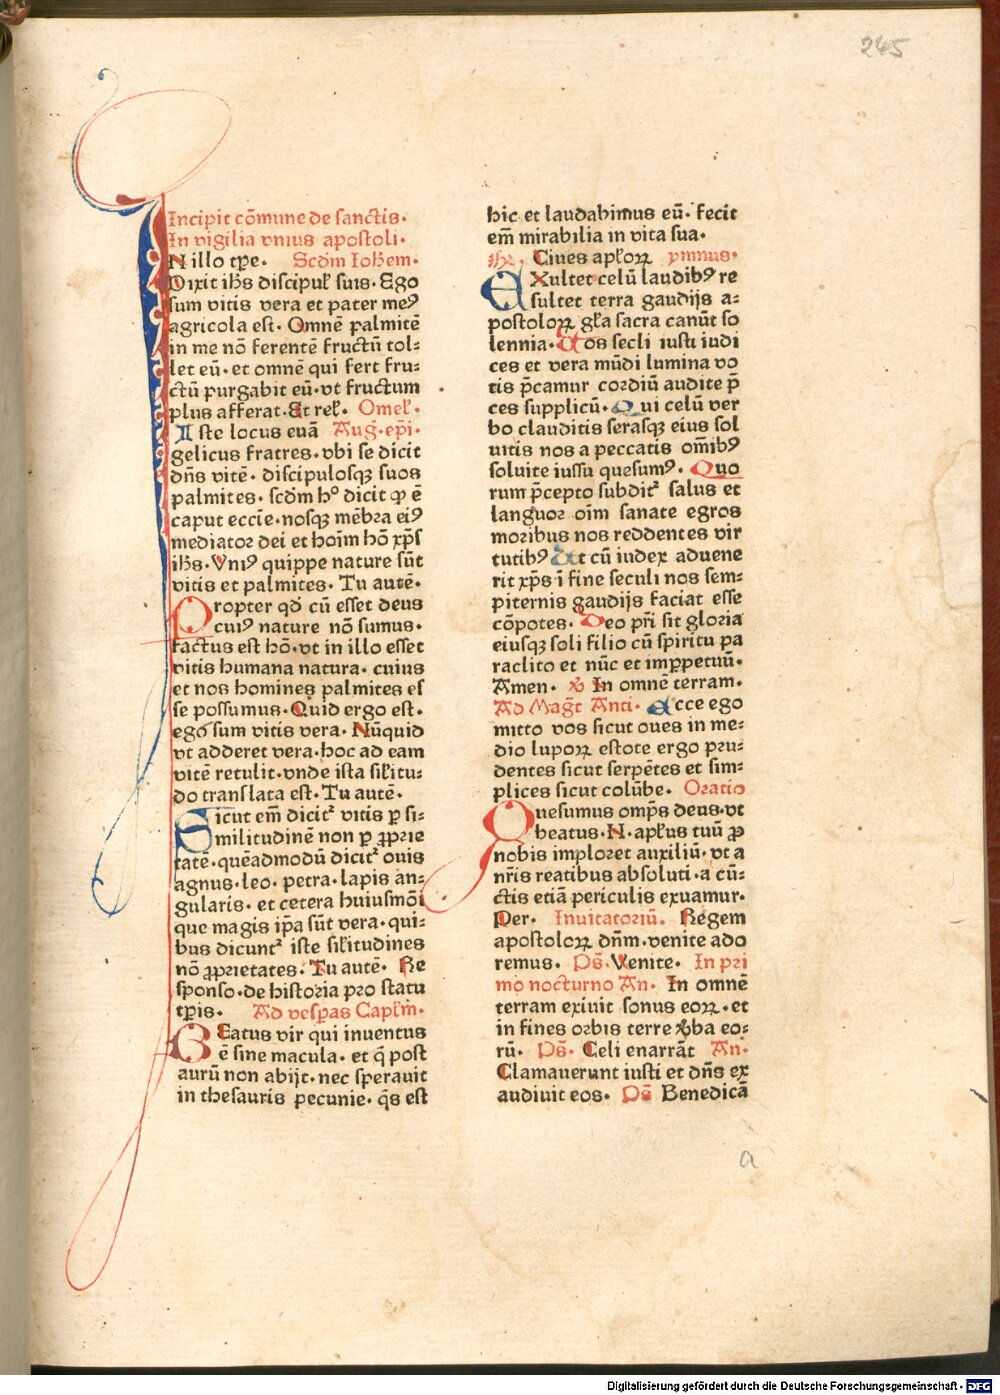 245
Incipit cōmune de sanctis.
In vigilia vnius apostoli.
IN illo tꝑe. Scd̄m Ioh̄em.
Dixit ih̄s discipul̄ suis. Ego
sum vitis vera et pater meꝰ
agricola est. Omnē palmitē
in me nō ferentē fructū tol⸗
let eū. et omnē qui fert fru⸗
ctū purgabit eū. vt fructum
plus afferat. Et rel̄. Omel̄.
Iste locus euā Auḡ. ep̄i.
gelicus fratres. vbi se dicit
dn̄s vitē. discipulosqꝫ suos
palmites. scd̄m hº dicit ꝙ ē
caput eccīe. nosqꝫ mēbra eiꝰ
mediator dei et hoīm hō xp̄s
ih̄s. Vniꝰ quippe nature sūt
vitis et palmites. Tu autē.
Propter qd̄ cū esset deus
cuiꝰ nature nō sumus.
factus est hō. vt in illo esset
vitis humana natura. cuius
et nos homines palmites es
se possumus. Quid ergo est.
ego sum vitis vera. Nūquid
vt adderet vera. hoc ad eam
vitē retulit. vnde ista sil̄itu⸗
do translata est. Tu autē.
Sicut em̄ dicit᷑ vitis ꝑ si⸗
militudinē non ꝑ ꝓprie
tatē. quēadmodū dicit᷑ ouis
agnus. leo. petra. lapis an⸗
gularis. et cetera huiusmōi
que magis ip̄a sūt vera. qui⸗
bus dicunt᷑ iste sil̄itudines
nō ꝓprietates. Tu autē. Re
sponso. de historia pro statu
tꝑis. Ad vesꝑas Capl̄m.
BEatus vir qui inuentus
ē sine macula. et q̄ post
aurū non abijt. nec sperauit
in thesauris pecunie. q̄s est
hic et laudabimus eū. fecit
em̄ mirabilia in vita sua.
Ciues apl̄oꝝ ymnus.
EXultet celū laudibꝰ re
sultet terra gaudijs a⸗
postoloꝝ gl̄a sacra canūt so
lennia. Uos secli iusti iudi
ces et vera mūdi lumina vo
tis p̄camur cordiū audite p̄
ces supplicū. Qui celū ver
bo clauditis serasqꝫ eius sol
uitis nos a peccatis om̄ibꝰ
soluite iussu quesumꝰ. Quo
rum p̄cepto subdit᷑ salus et
languor oīm sanate egros
moribus nos reddentes vir
tutibꝰ Ut cū iudex aduene
rit xp̄s ī fine seculi nos sem⸗
piternis gaudijs faciat esse
cōpotes. Deo pr̄i sit gloria
eiusqꝫ soli filio cū spiritu pa
raclito et nūc et imꝑpetuū.
Amen. ℣ In omnē terram.
Ad Maḡt Anti. Ecce ego
mitto vos sicut oues in me⸗
dio lupoꝝ estote ergo pru⸗
dentes sicut serpētes et sim⸗
plices sicut colūbe. Oratio
Quesumus omp̄s deus. vt
beatus. N. apl̄us tuū ꝓ
nobis imploret auxiliū. vt a
nr̄is reatibus absoluti. a cū⸗
ctis etiā periculis exuamur.
Per. Inuitatoriū. Regem
apostoloꝝ dn̄m. venite ado
remus. Ps̄. Venite. In pri
mo nocturno An. In omnē
terram exiuit sonus eoꝝ. et
in fines orbis terre v̄ba eo⸗
rū. Ps̄. Celi enarrāt An.
Clamauerunt iusti et dn̄s ex
audiuit eos. Ps̄ Benedicā
a
Digitalisierung gefördert durch die Deutsche Forschungsgemeinschaft - DFG